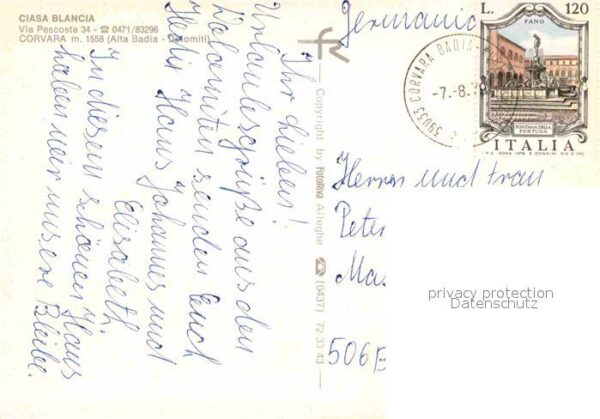 CIASA BLANCIA
Via Pescosta 34 - ☎ 0471/83296
CORVARA m. 1558 (Alta Badia - Dolomiti)
Ihr Lieben!
Urlaubsgrüße aus den
Dolomiten senden Euch
Hans Johannes und
Elisabeth.
In diesem schönen Haus
haben wir unsere Bleibe.
Copyright by fotoRna Alleghe ☎ (0437) 72 33 43
Germania
L. 120
FANO
FONTANA DELLA FORTUNA
ITALIA
39033 CORVARA BADIA
-7.-8.78
Herrn und Frau
Peter
Ma
506
privacy protection
Datenschutz